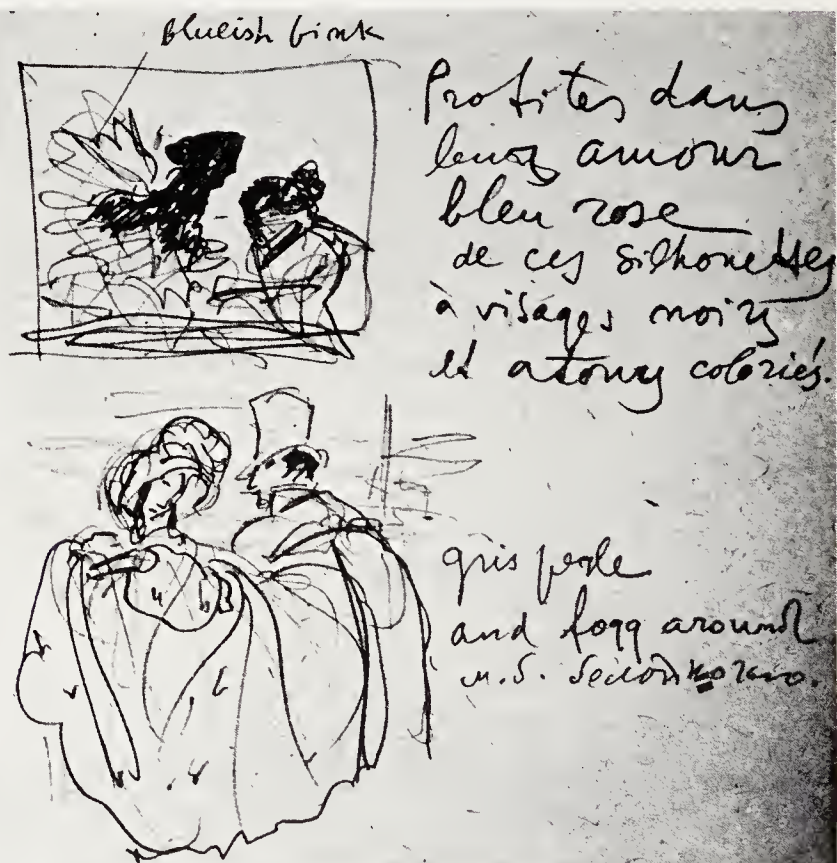 Blueish bink
Profites dans
leurs amour
bleu rose
de ces silhouettes
à visages noirs
et atours coloriés.
gris perle
and fogg around